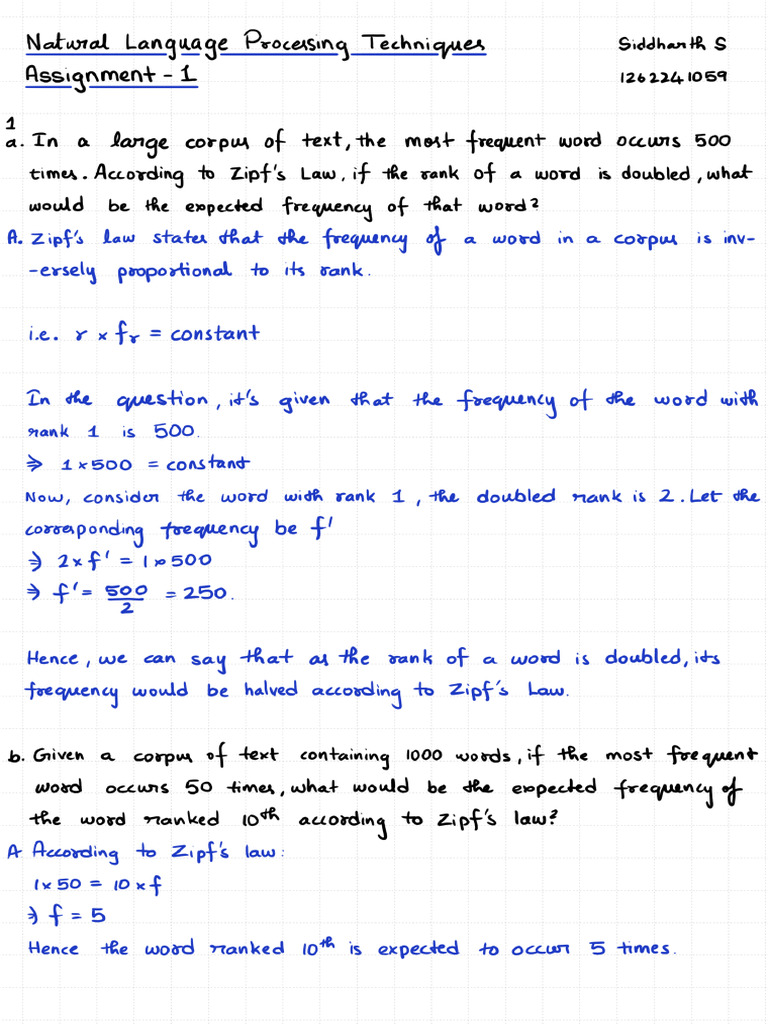 Natural Language Processing Techniques
Siddharth S
Assignment - 1
1262241059
1
a. In a large corpus of text, the most frequent word occurs 500
times. According to Zipf's Law, if the rank of a word is doubled, what
would be the expected frequency of that word?
A. Zipf's law states that the frequency of a word in a corpus is inv-
-ersely proportional to its rank.
i.e. r × fr = constant
In the question, it's given that the frequency of the word with
rank 1 is 500.
⇒ 1 × 500 = constant
Now, consider the word with rank 1, the doubled rank is 2. Let the
corresponding frequency be f'
⇒ 2 × f' = 1 × 500
⇒ f' = 500/2 = 250.
Hence, we can say that as the rank of a word is doubled, its
frequency would be halved according to Zipf's Law.
b. Given a corpus of text containing 1000 words, if the most frequent
word occurs 50 times, what would be the expected frequency of
the word ranked 10th according to Zipf's law?
A According to Zipf's law:
1 × 50 = 10 × f
⇒ f = 5
Hence the word ranked 10th is expected to occur 5 times.